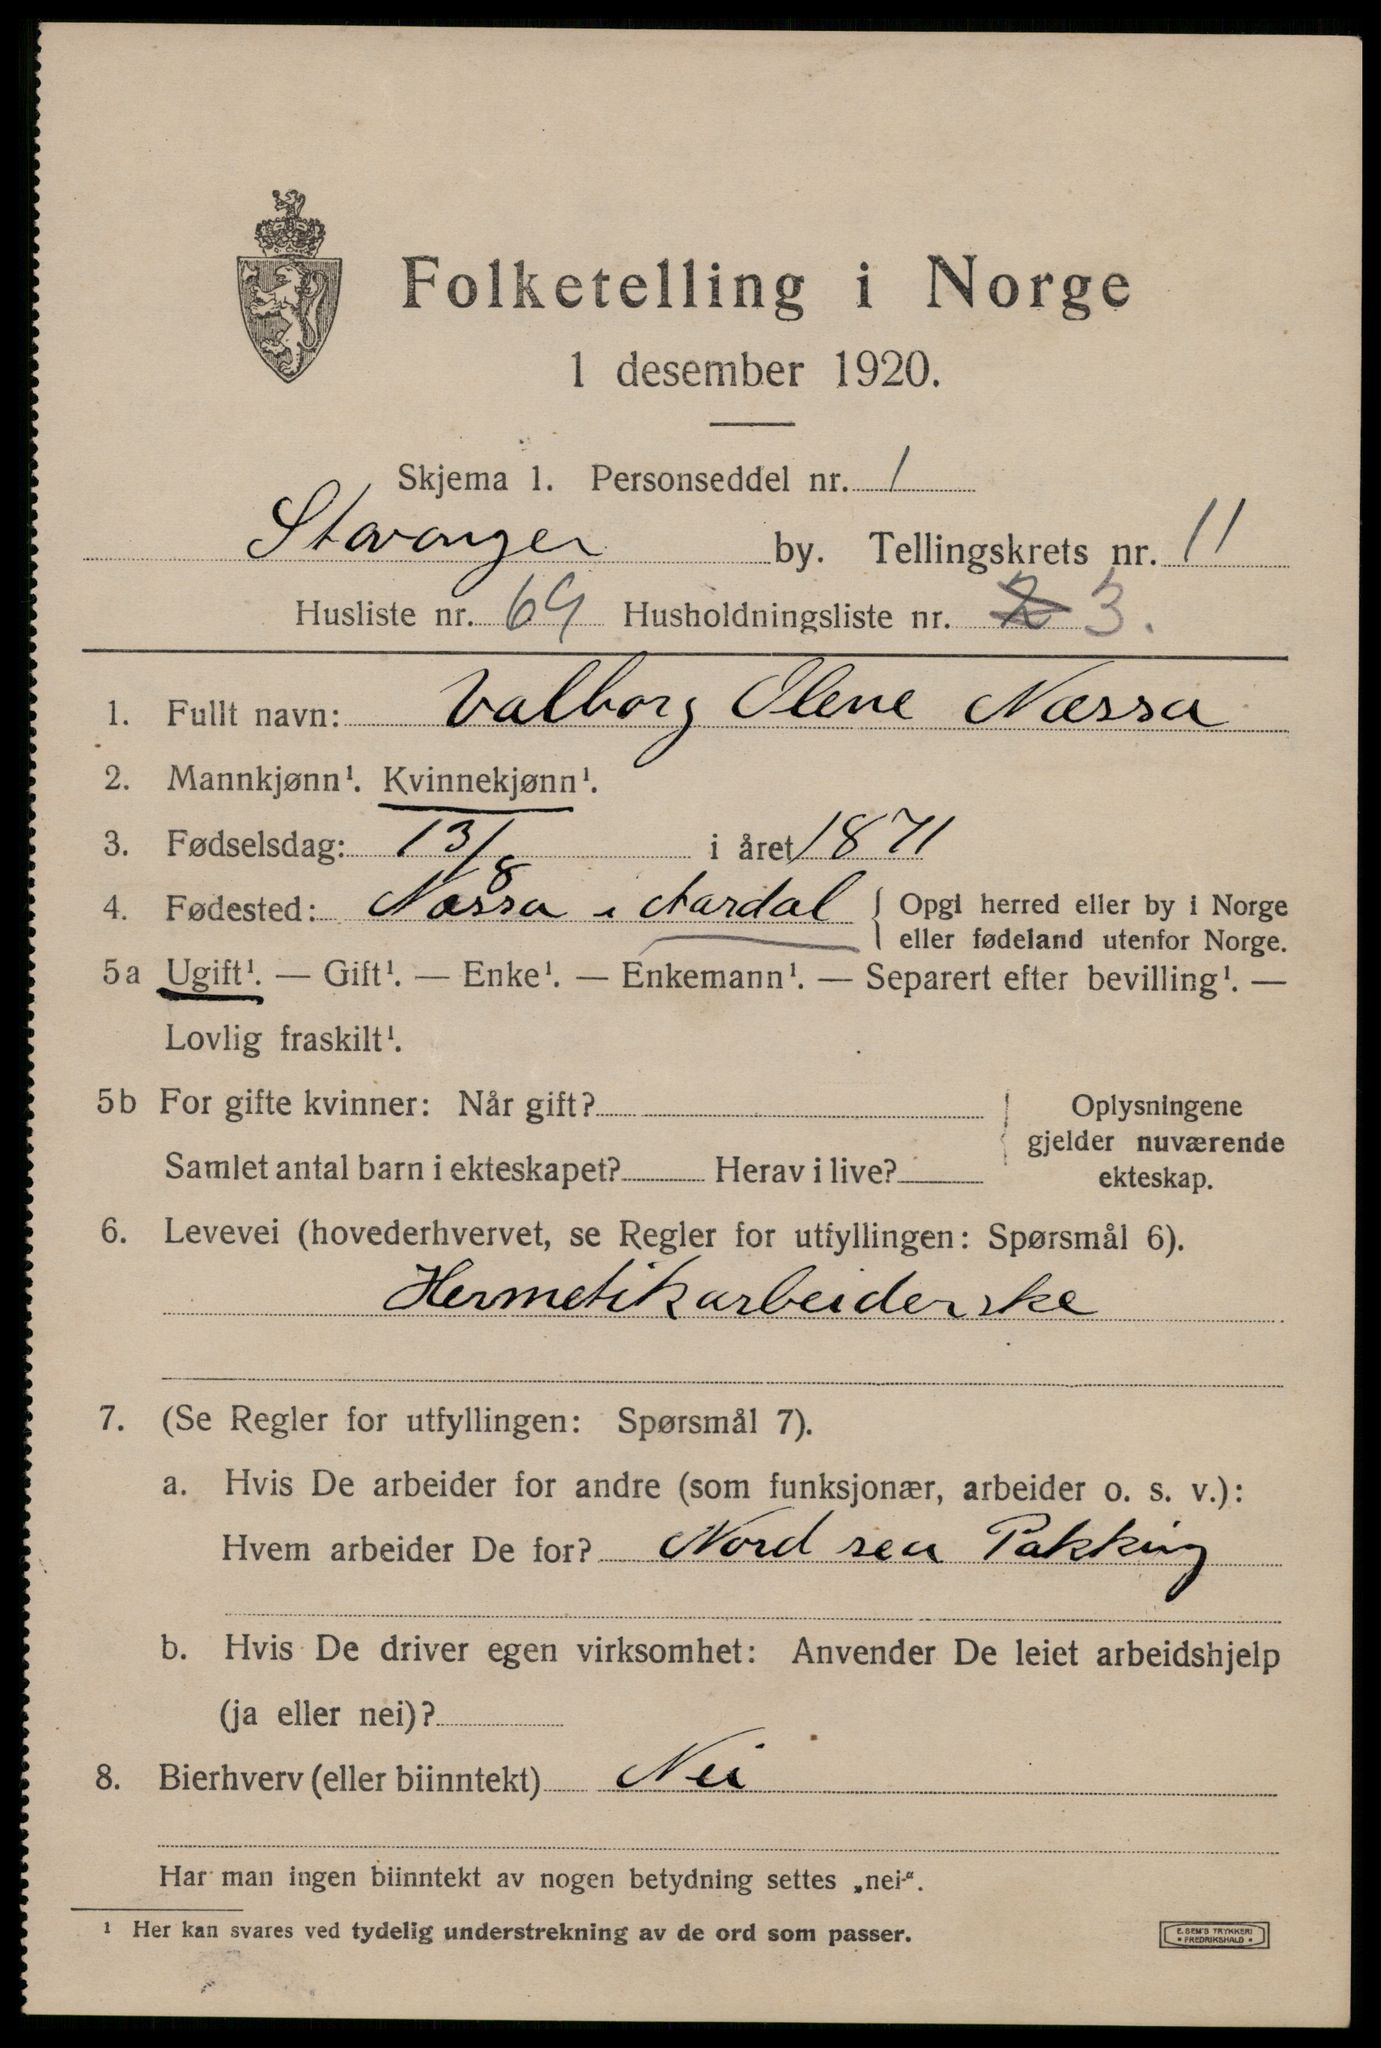 Folketelling i Norge
1 desember 1920.
Skjema 1. Personseddel nr. 1
Stavanger by. Tellingskrets nr. 11
Husliste nr. 69 Husholdningsliste nr. 2 3.
1. Fullt navn: Valborg Olene Næssa
2. Mannkjønn¹. Kvinnekjønn¹.
3. Fødselsdag: 13/8 i året 1871
4. Fødested: Næssa i Aardal { Opgi herred eller by i Norge
eller fødeland utenfor Norge.
5a Ugift¹. — Gift¹. — Enke¹. — Enkemann¹. — Separert efter bevilling¹. —
Lovlig fraskilt¹.
5b For gifte kvinner: Når gift? { Oplysningene
gjelder nuværende
Samlet antal barn i ekteskapet? Herav i live? ekteskap.
6. Levevei (hovederhvervet, se Regler for utfyllingen: Spørsmål 6).
Hermetikarbeiderske
7. (Se Regler for utfyllingen: Spørsmål 7).
a. Hvis De arbeider for andre (som funksjonær, arbeider o. s. v.):
Hvem arbeider De for? Nord sea Pakking
b. Hvis De driver egen virksomhet: Anvender De leiet arbeidshjelp
(ja eller nei)?
8. Bierhverv (eller biinntekt) Nei
Har man ingen biinntekt av nogen betydning settes „nei“.
¹ Her kan svares ved tydelig understrekning av de ord som passer.
E. SEM'S TRYKKERI
• FREDRIKSHALD •